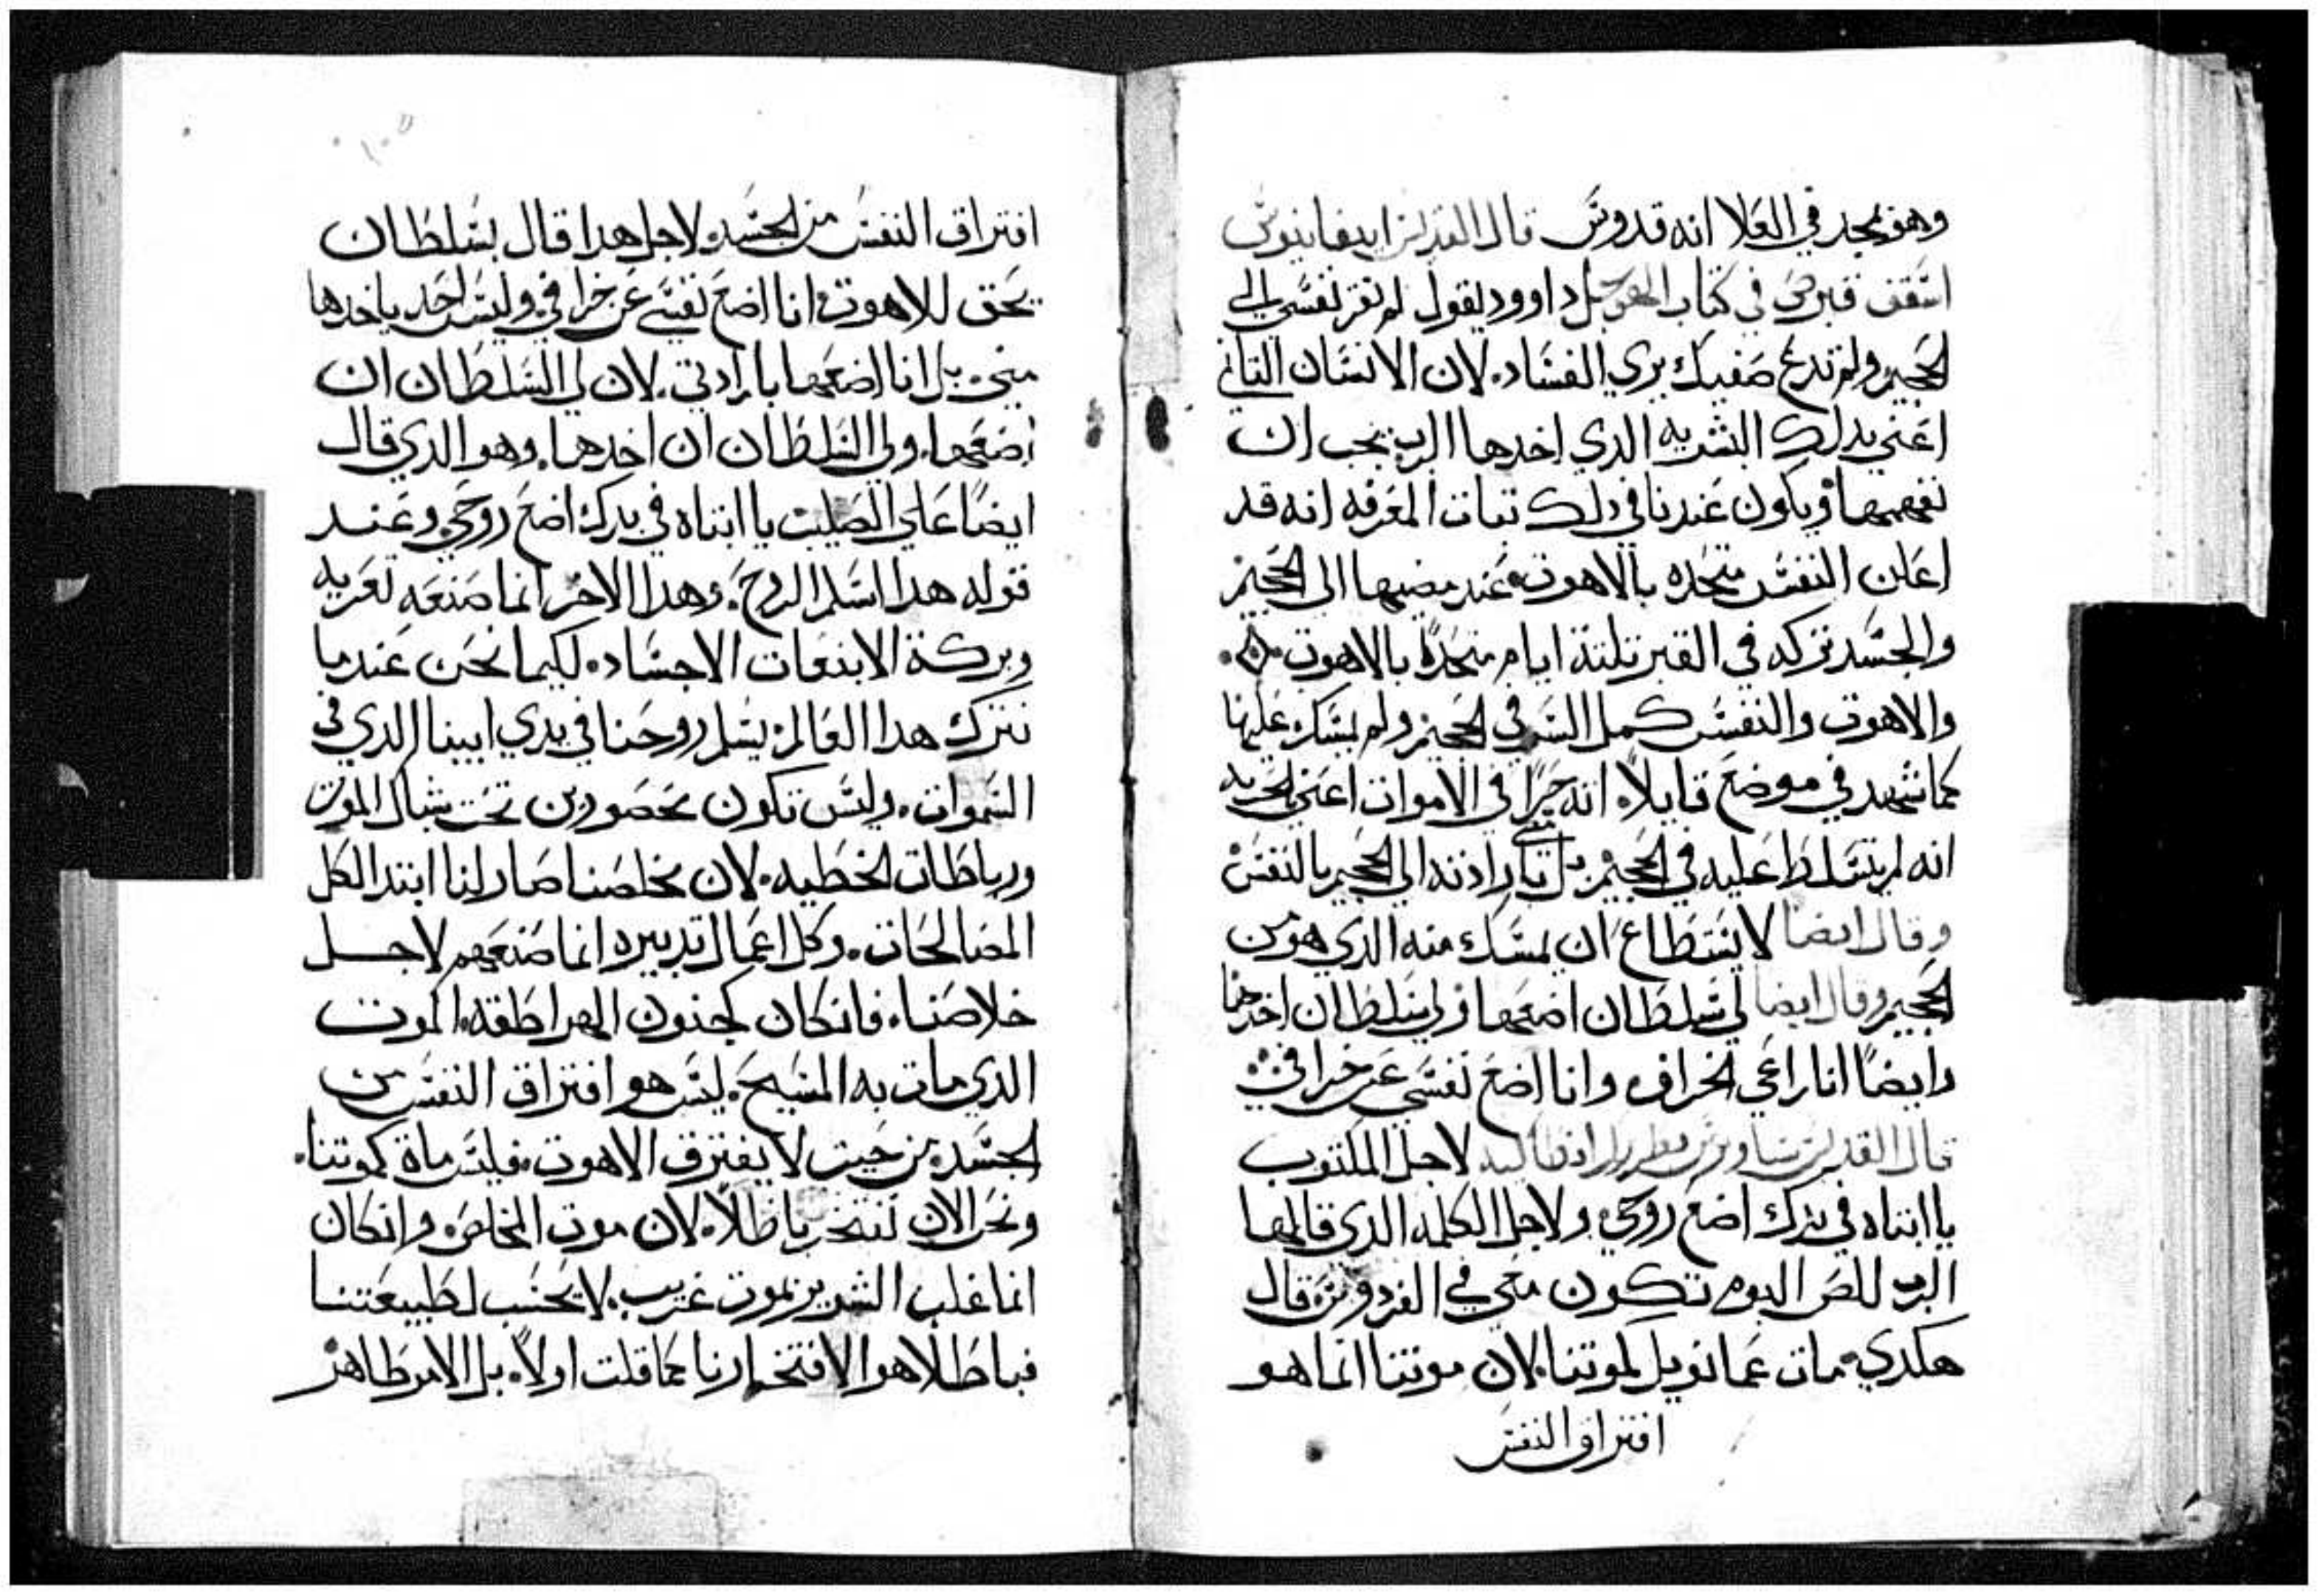 وهو يمجد في العلا انه قدوس قال القديس ابيفانيوس
اسقف قبرص في كتاب الهوجل داوود يقول لم تقر نفسي الي
الجحيم ولم تدع صفيك يري الفساد. لان الانسان التاني
اعني بدلك البشريه الدي اخدها الرب يجب ان
نفهمها ويكون عندنا في دلك تبات المعرفه انه قد
اعلن النفس متحده بالاهوت عند مضيها الى الجحيم
والجسد تركه في القبر تلتة ايام متحدًا بالاهوت.
والاهوت والنفس كمل السر في الجحيم ولم يمسك عليها
كما شهد في موضع قايلاً. انه حرًا في الاموات اعني بحريه
انه لم يتسلط عليه في الجحيم بل بارادته الي الجحيم بالنفس
وقال ايضا لا يستطاع ان يمسك منه الدي هو من
الجحيم وقال ايضا لي سلطان اضعها ولي سلطان اخدها
وايضًا انا راعي الخراف وانا اضع نفسي عن خرافي
قال القديس ساويرس بطريرك انطاكيه لاجل المكتوب
يا ابتاه في يدك اضع روحي ولاجل الكلمه الدي قالها
الرب للص اليوم تكون معي في الفردوس قال
هكدي مات عمانويل لموتنا. لان موتنا انما هو
افتراق النفس
افتراق النفس من الجسد. لاجل هدا قال بسلطان
يحق للاهوت انا اضع نفسي عن خرافي. وليس احد ياخدها
مني. بل انا اضعها بارادتي. لان لي السلطان ان
اضعها. ولي السلطان ان اخدها. وهو الدي قال
ايضًا علي الصليب يا ابتاه في يدك اضع روحي. وعند
قوله هدا اسلم الروح. وهدا الامر انما صنعه تعزيه
وبركة الابنعات الاجساد. لكيما نحن عندما
نترك هدا العالم. يسلم روحنا في يدي ابينا الدي في
السموات. وليس نكون محصورين تحت شباك الموت
ورباطات الخطيه. لان مخلصنا صار لنا ابتدا لكل
الصالحات. وكل اعمال تدبيره انما صنعهم لاجل
خلاصنا. فانكان كجنون الهراطقه. الموت
الدي مات به المسيح. ليس هو افتراق النفس من
الجسد من حيت لا يفترق الاهوت. فليس مات كموتنا.
ونحن الان نفتخر باطلاً. لان موت المخلص وانكان
انما غلب الشرير بموت غريب. لا يحسب لطبيعتنا
فباطلا هو الافتخارنا كما قلت اولاً. بل الامر ظاهر